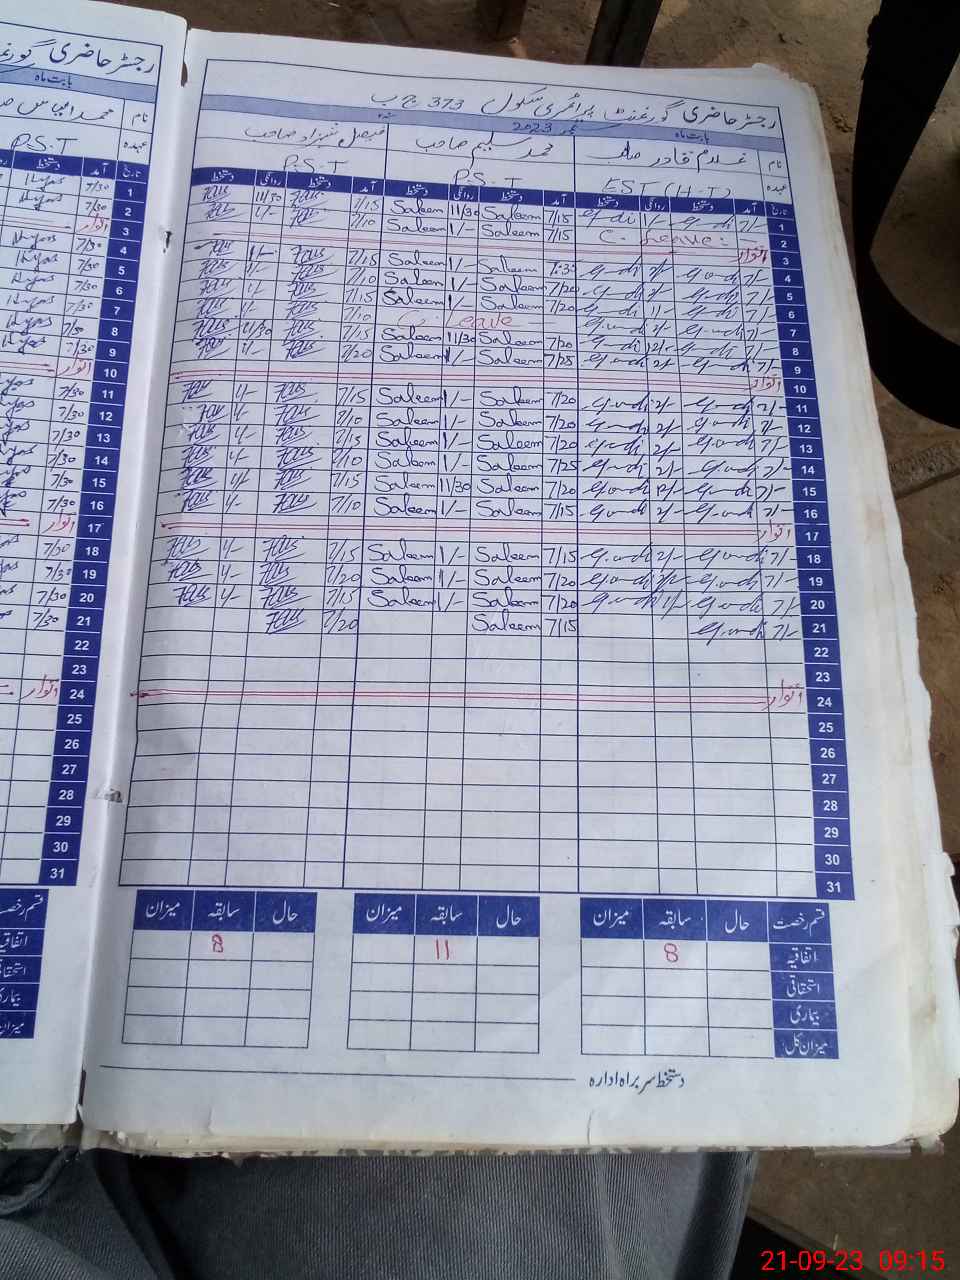 رجسٹر حاضری گورنمنٹ پرائمری سکول 373 ج ب
بابت ماہ ستمبر 2023ء
نام غلام قادر صاحب محمد سلیم صاحب فیصل شہزاد صاحب
عہدہ EST (H.T) P.S.T P.S.T
تاریخ آمد دستخط روانگی دستخط آمد دستخط روانگی دستخط آمد دستخط روانگی دستخط
1 7/- 1/- 7/15 Saleem 11/30 Saleem 7/15 11/30
2 C. Leave. 7/15 Saleem 1/- Saleem 7/10 1/-
3 اتوار
4 7/- 2/- 7:30 Saleem 1/- Saleem 7/15 1/-
5 7/- 2/- 7/20 Saleem 1/- Saleem 7/10 1/-
6 7/- 11/- 7/20 Saleem 1/- Saleem 7/15 1/-
7 7/- 2/- C. Leave 7/10 1/-
8 7/- 12/- 7/20 Saleem 11/30 Saleem 7/15 11/30
9 7/- 2/- 7/25 Saleem 1/- Saleem 7/20 1/-
10 اتوار
11 7/- 2/- 7/20 Saleem 1/- Saleem 7/15 1/-
12 7/- 2/- 7/20 Saleem 1/- Saleem 7/10 1/-
13 7/- 2/- 7/20 Saleem 1/- Saleem 7/15 1/-
14 7/- 2/- 7/25 Saleem 1/- Saleem 7/10 1/-
15 7/- 12/- 7/20 Saleem 11/30 Saleem 7/15 1/-
16 7/- 2/- 7/15 Saleem 1/- Saleem 7/10 1/-
17 اتوار
18 7/- 2/- 7/15 Saleem 1/- Saleem 7/15 1/-
19 7/- 2/- 7/20 Saleem 1/- Saleem 7/20 1/-
20 7/- 1/- 7/20 Saleem 1/- Saleem 7/15 1/-
21 7/- 7/15 Saleem 7/20
22
23
24 اتوار
25
26
27
28
29
30
31
قسم رخصت حال سابقہ میزان حال سابقہ میزان حال سابقہ میزان
اتفاقیہ 8 11 8
استحقاقی
بیماری
میزان کل
دستخط سربراہ ادارہ
رجسٹر حاضری
بابت ماہ
نام محمد الیاس
عہدہ P.S.T
تاریخ آمد دستخط
1 7/30 Ilyas
2 7/30 Ilyas
3 اتوار
4 7/30 Ilyas
5 7/30 Ilyas
6 7/30 Ilyas
7 7/30 Ilyas
8 7/30 Ilyas
9 7/30 Ilyas
10 اتوار
11 7/30
12 7/30
13 7/30
14 7/30
15 7/30
16 7/30
17 اتوار
18 7/30
19 7/30
20 7/30
21 7/30
22
23
24 اتوار
25
26
27
28
29
30
31
قسم رخصت
اتفاقیہ
استحقاقی
بیماری
میزان
21-09-23 09:15